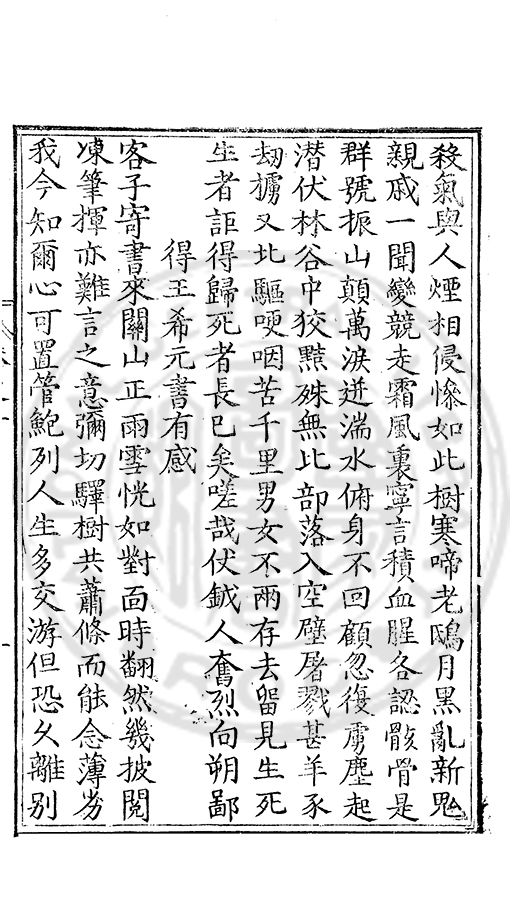 殺氣與人煙相侵慘如此樹寒啼老鴟月黑亂新鬼
親戚一聞變競走霜風裏寧言積血腥各認骸骨是
群號振山顛萬淚迸湍水俯身不回顧忽復虜塵起
潜伏林谷中狡黠殊無比部落入空壁屠戮甚羊豕
刼擄又北驅哽咽苦千里男女不兩存去留見生死
生者詎得歸死者長已矣嗟哉伏鉞人奮烈向朔鄙
得王希元書有感
客子寄書來關山正雨雪恍如對面時翻然幾披閱
凍筆揮亦難言之意彌切驛樹共蕭條而能念薄劣
我今知爾心可置管鮑列人生多交游但恐久離别